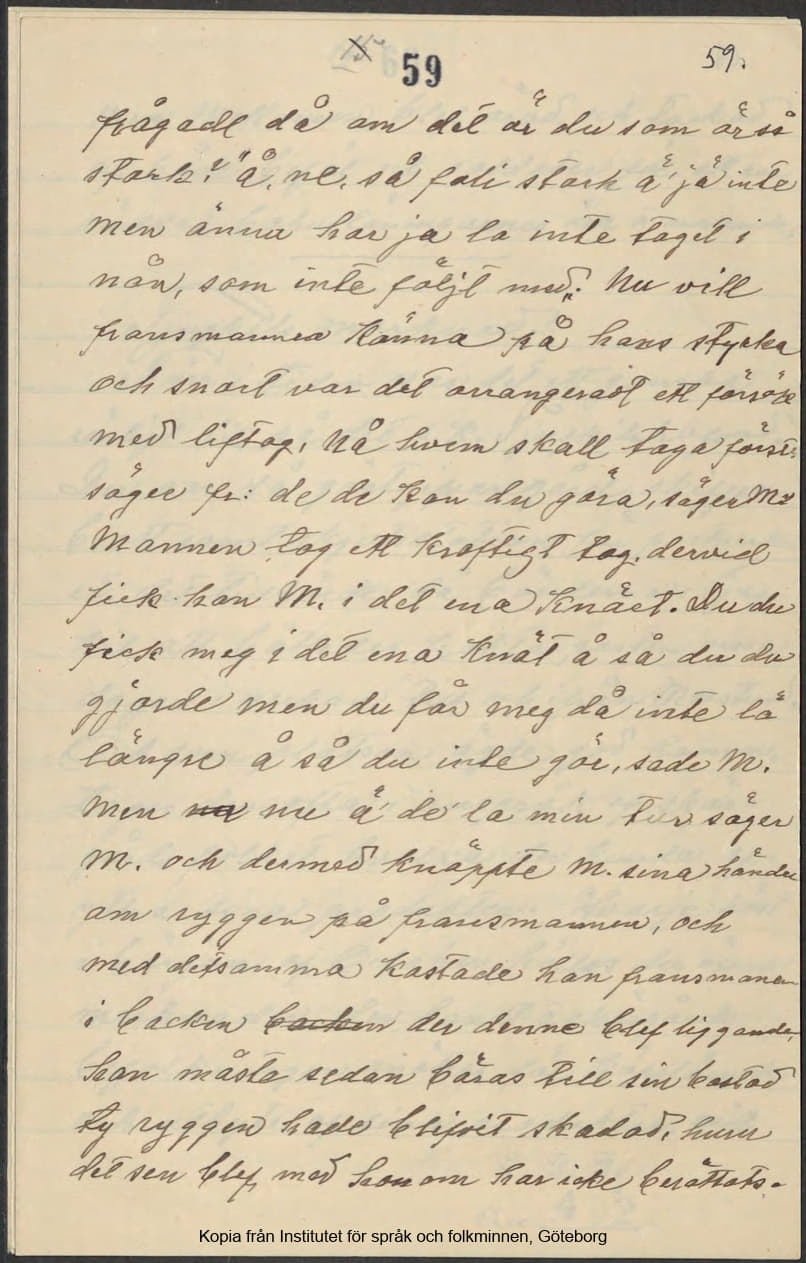 59 59.
frågade då om det är du som är så
stark? "Å, ne, så fali stark ä' jä inte
men ännu har ja la inte taget i
nån, som inte följt med". Nu vill
fransmannen känna på hans styrka
och snart var det arrangeradt ett försök
med liftag, Nå hvem skall taga först:
säger fr: de de kan du göra, säger M:
Mannen tog ett kraftigt tag, dervid
fick han M. i det ena knäet. Du du
fick meg i det ena knät å så du du
gjorde men du får meg då inte lä
längre å så du inte gör, sade M.
Men nu ä' de' la min tur säger
M. och dermed knäppte M. sina händer
om ryggen på fransmannen, och
med detsamma kastade han fransmanen
i backen backen der denne blef liggande,
han måste sedan bäras till sin bostad
ty ryggen hade blifvit skadad, huru
det sen blef med honom har icke berättats.
Kopia från Institutet för språk och folkminnen, Göteborg